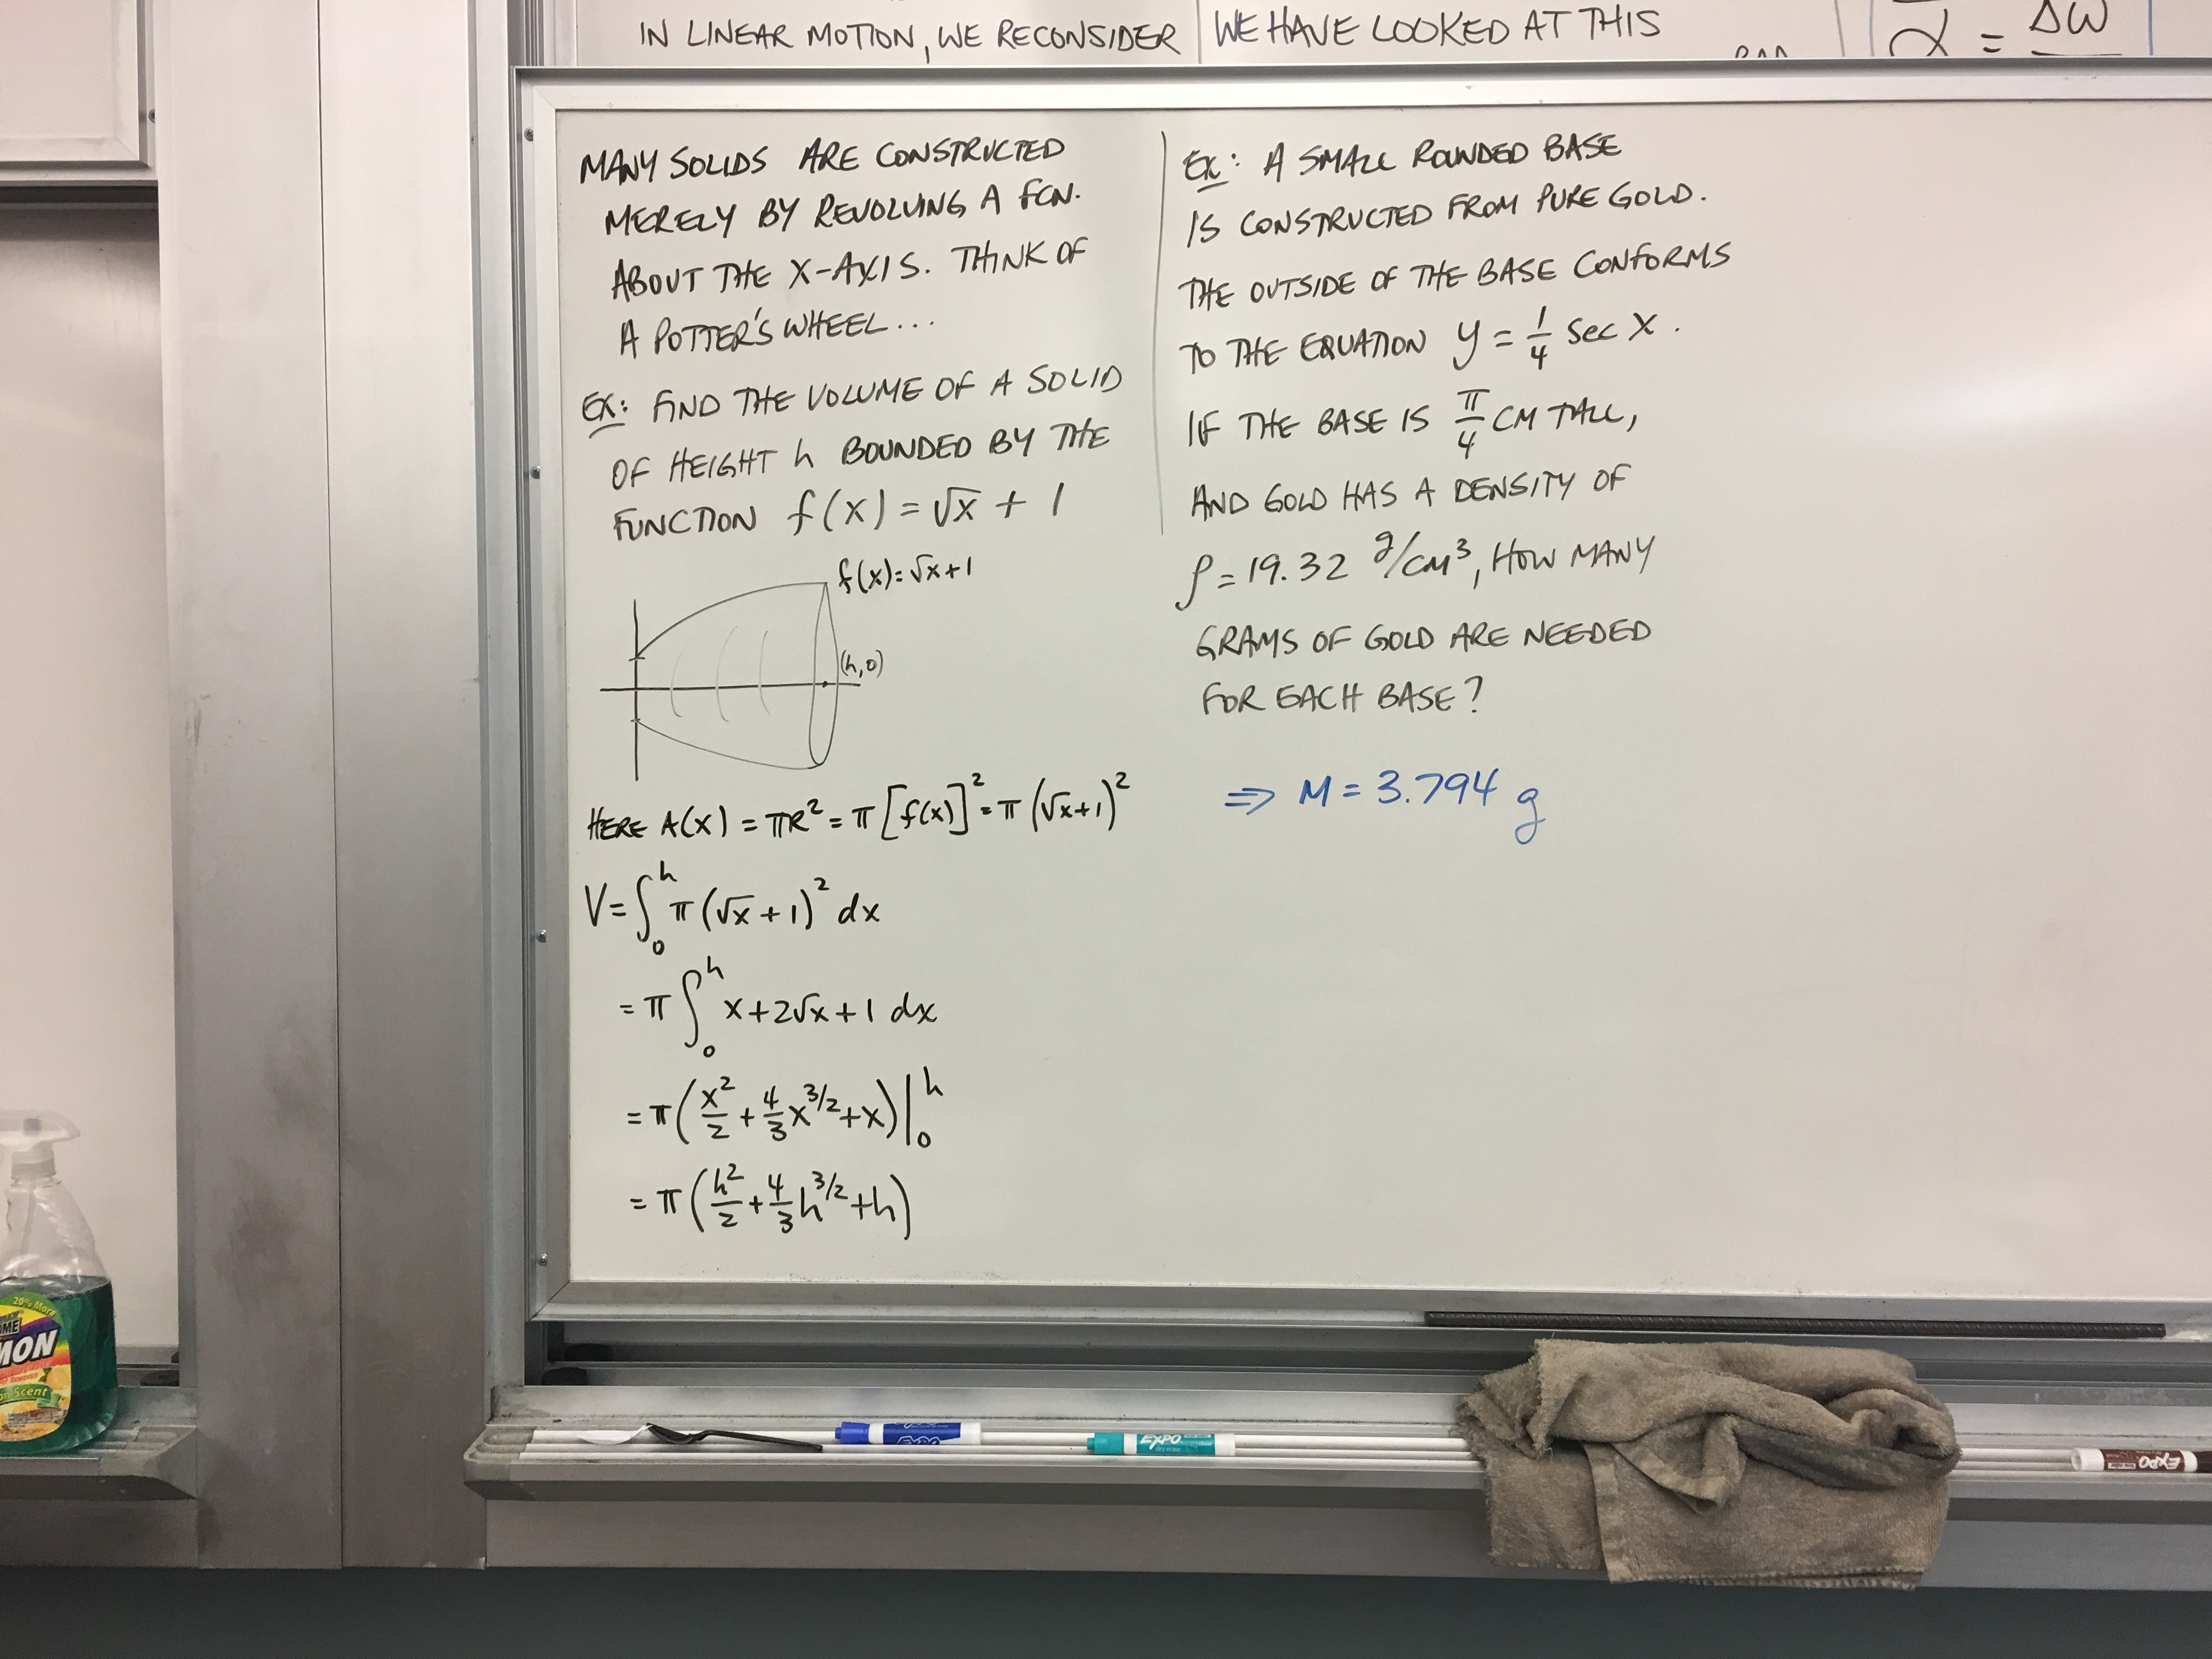 IN LINEAR MOTION, WE RECONSIDER
WE HAVE LOOKED AT THIS
α = Δω
MANY SOLIDS ARE CONSTRUCTED
MERELY BY REVOLVING A FCN.
ABOUT THE X-AXIS. THINK OF
A POTTER'S WHEEL...
EX: FIND THE VOLUME OF A SOLID
OF HEIGHT h BOUNDED BY THE
FUNCTION f(x) = √x + 1
f(x)=√x+1
(h,0)
HERE A(x) = πR² = π[f(x)]² = π(√x+1)²
V = ∫₀ʰ π(√x + 1)² dx
= π ∫₀ʰ x + 2√x + 1 dx
= π(x²/2 + 4/3 x^3/2 + x)|₀ʰ
= π(h²/2 + 4/3 h^3/2 + h)
EX: A SMALL ROUNDED BASE
IS CONSTRUCTED FROM PURE GOLD.
THE OUTSIDE OF THE BASE CONFORMS
TO THE EQUATION y = 1/4 sec x.
IF THE BASE IS π/4 CM TALL,
AND GOLD HAS A DENSITY OF
ρ = 19.32 g/cm³, HOW MANY
GRAMS OF GOLD ARE NEEDED
FOR EACH BASE?
⇒ M = 3.794 g
20% More
MON
Scent
EXPO
EXPO
dry erase
EXPO